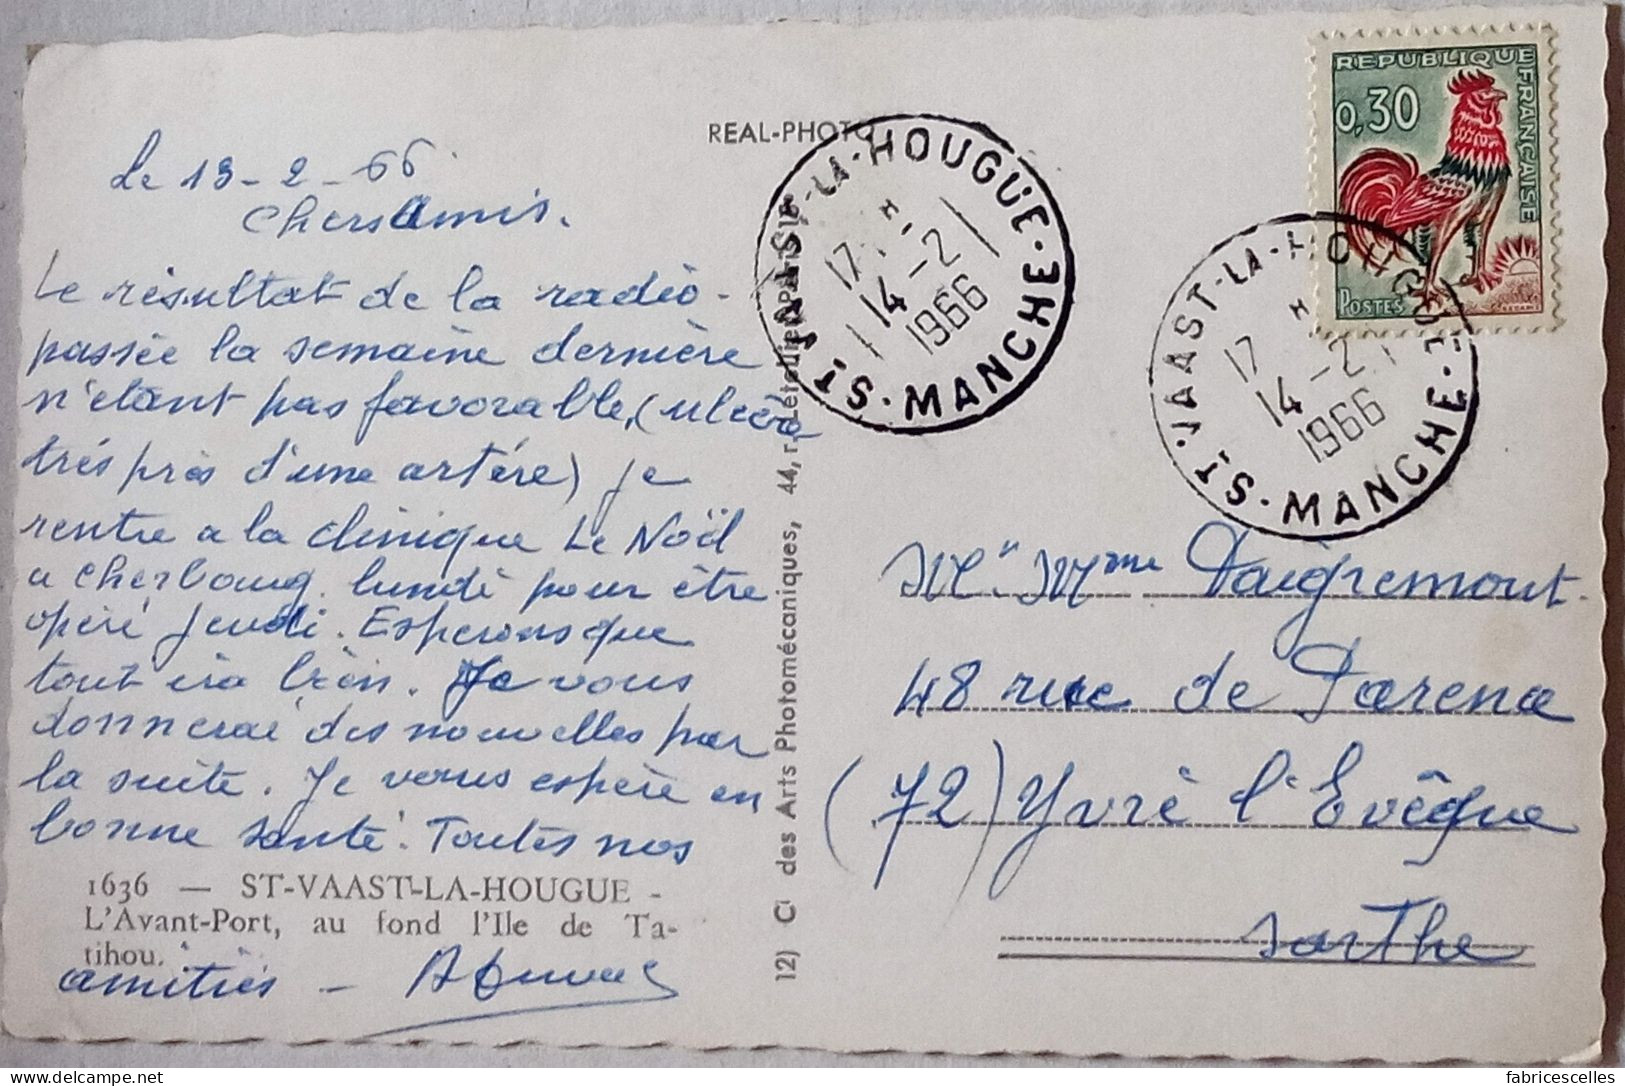 REPUBLIQUE FRANÇAISE
0,30
POSTES
REAL-PHOTO
ST-VAAST-LA-HOUGUE · MANCHE
17 H
14-2
1966
ST-VAAST-LA-HOUGUE · MANCHE
17 H
14-2
1966
Le 13-2-66
Chers Amis.
Le résultat de la radio-
passée la semaine dernière
n'étant pas favorable, (ulcère
trés près d'une artére) je
rentre a la clinique Le Noël
a Cherbourg. lundi pour être
opéré jeudi. Esperons que
tout ira bien. Je vous
donnerai des nouvelles par
la suite. Je vous espère en
bonne santé. Toutes nos
1636 — ST-VAAST-LA-HOUGUE -
L'Avant-Port, au fond l'Ile de Ta-
tihou.
amitiés -
12) Cie des Arts Photomécaniques, 44, r. Letellier, Paris
Mr. Mme Daigremont.
48 rue de Parena
(72) Yvré l'Evêque
Sarthe
fabricescelles